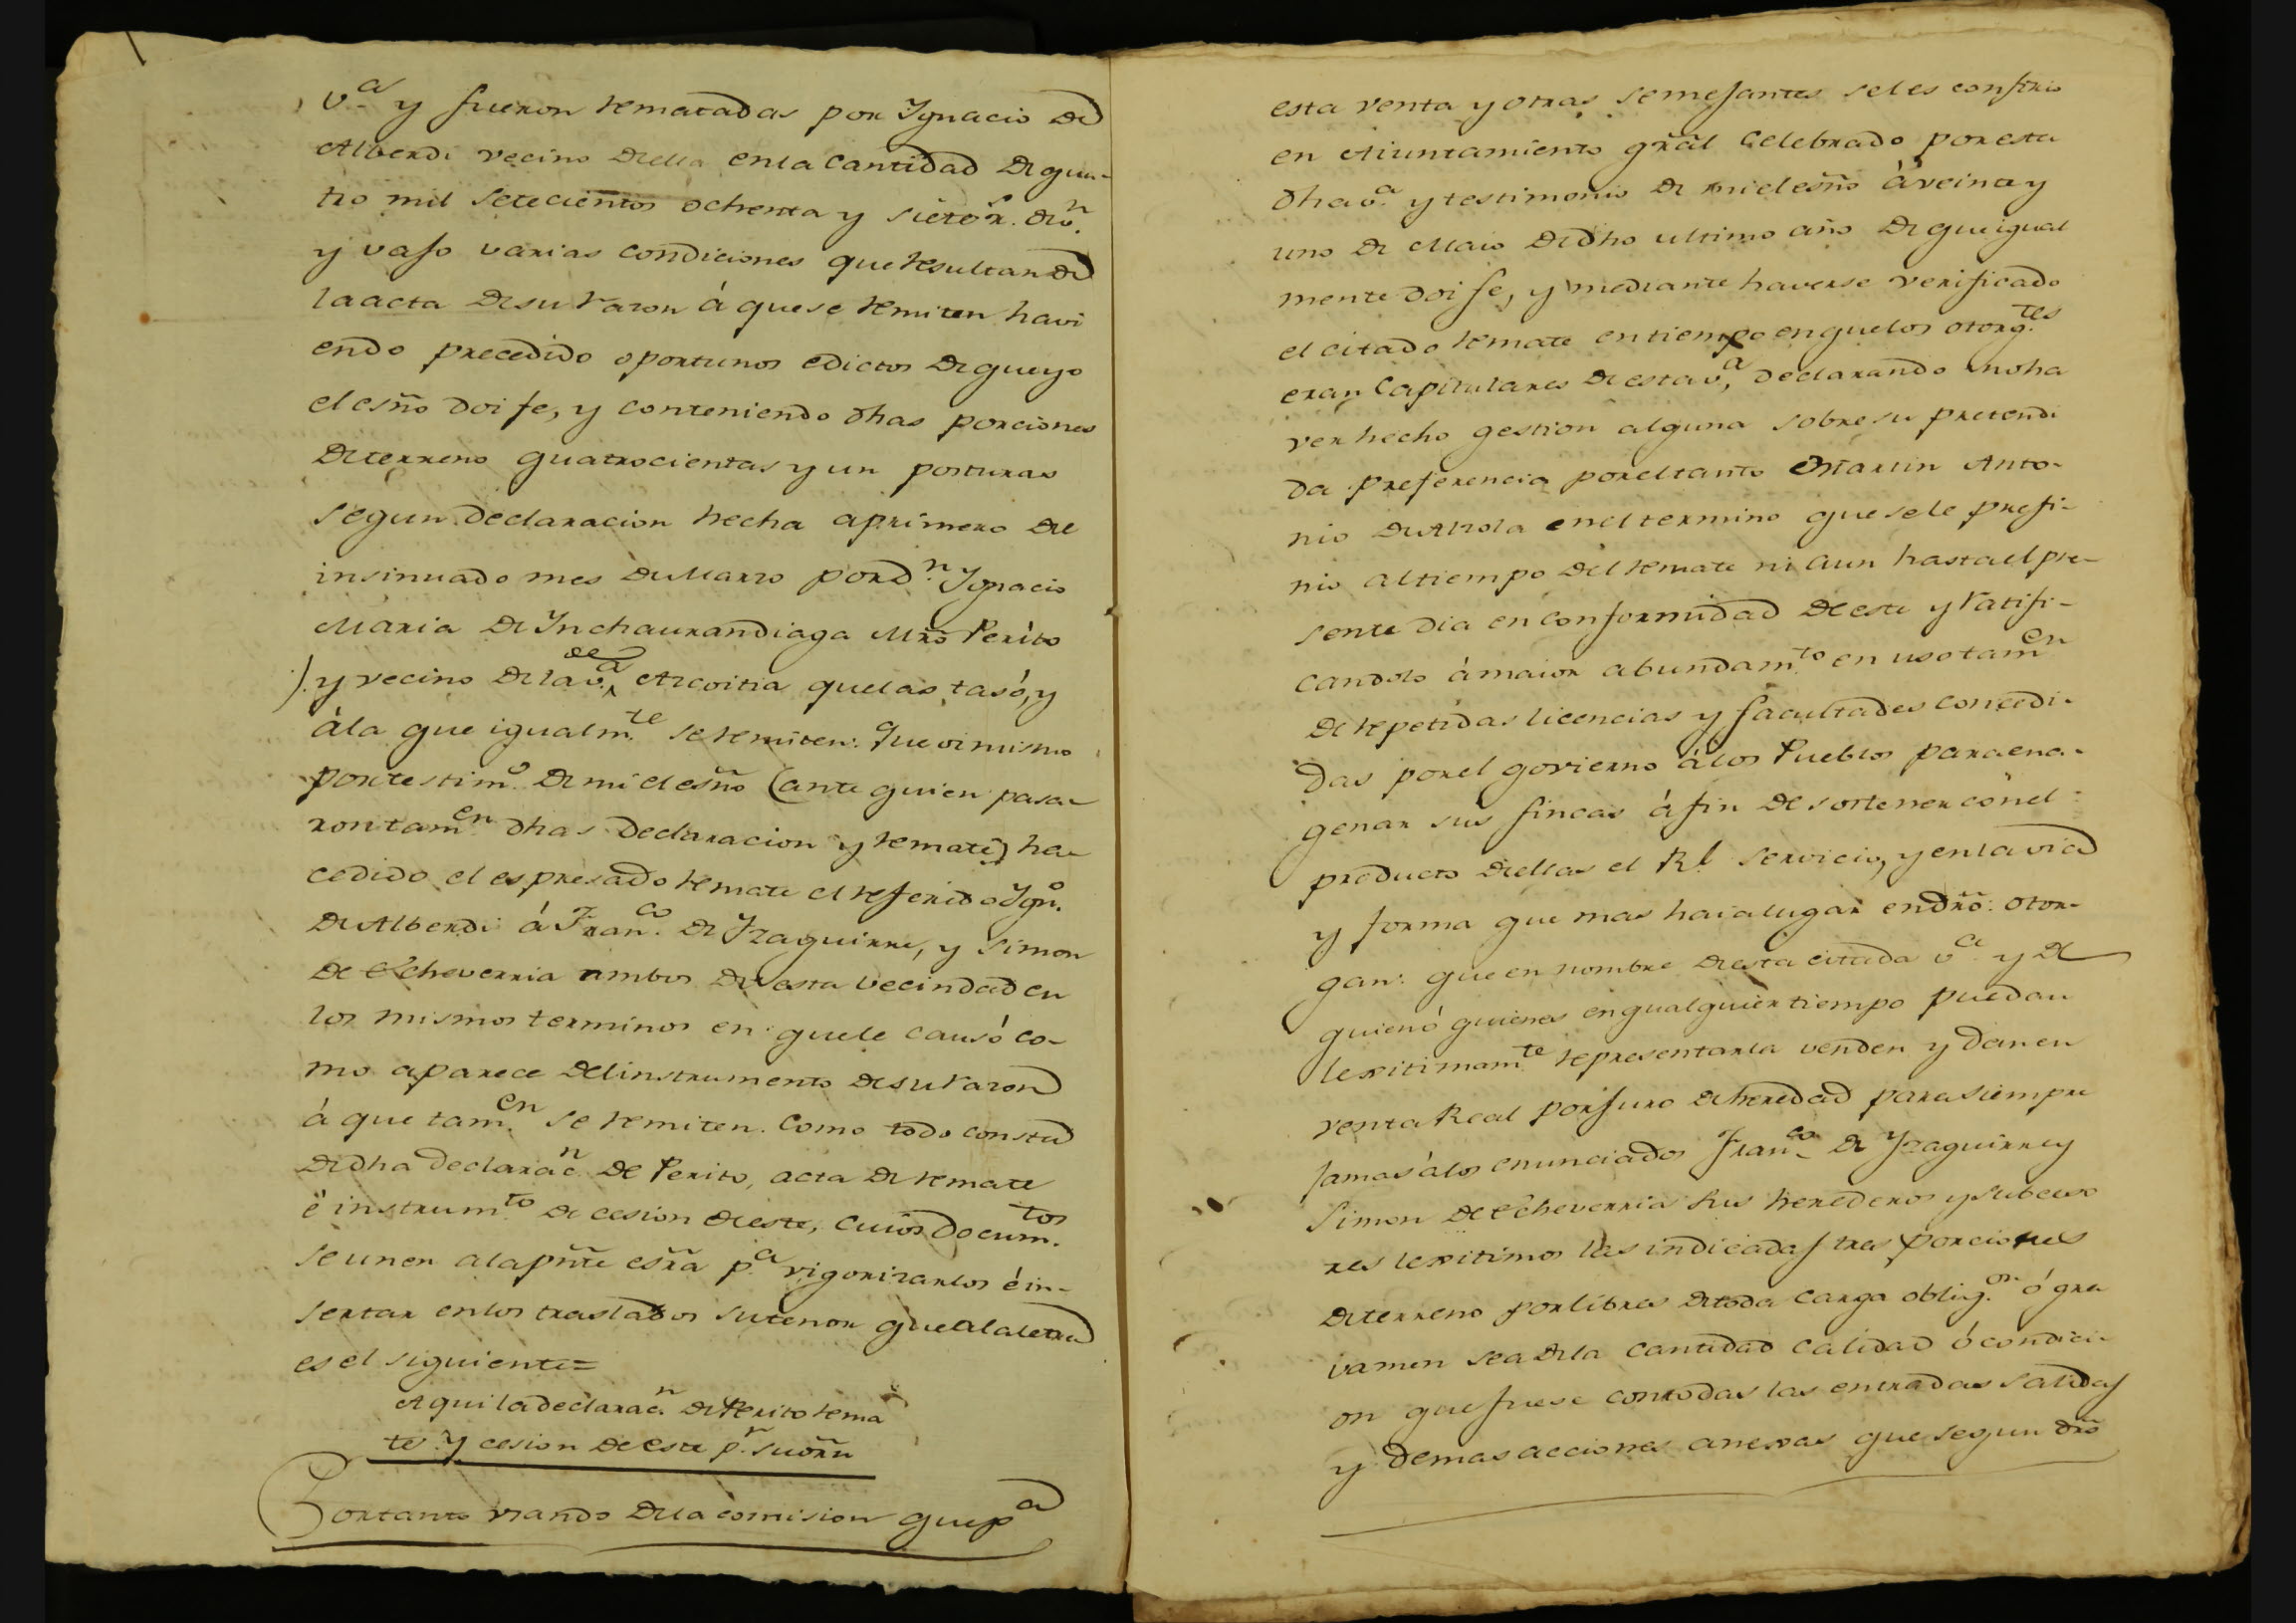 v.ª y fueron rematadas por Ygnacio de
Alberdi vecino de ella en la cantidad de qua-
tro mil setecientos ochenta y siete r.s de v.n
y vajo varias condiciones que resultan de
la acta de su razon á que se remiten havi
endo precedido oportunos edictos de que yo
el esño doi fe, y conteniendo dhas porciones
de terreno quatrocientas y un posturas
segun declaracion hecha a primero del
insinuado mes de Marzo por d.n Ygnacio
Maria de Ynchaurandiaga Mrõ Perito
y vecino de la v.ª de Azcoitia que las tasó, y
á la que igualm.te se remiten: Que oi mismo
por testim.º de mi el esño (ante quien pasa-
ron tam.en dhas declaracion y remate) ha
cedido el espresado remate el referido Ygn.º
de Alberdi á Fran.co de Yzaguirre, y Simon
de Echeverria ambos de esta vecindad en
los mismos terminos en que le causó co-
mo aparece del instrumento de su razon
á que tam.en se remiten. Como todo consta
de dha declarac.n de Perito, acta de remate
é instrum.to de cesion de este, cuios docum.tos
se unen a la pñte esrã p.ª vigorizarlos é in-
sertar en los traslados su tenor que a la letra
es el siguiente=
Aqui la declarac.n de Perito rema
te y cesion de este p.r su orñ
Por tanto usando de la comision que p.ª
esta venta y otras semejantes se les confirio
en Aiuntamiento grãl celebrado por esta
dha v.ª y testimonio de mi el esño á veinte y
uno de Maio de dho ultimo año de que igual
mente doi fe, y mediante haverse verificado
el citado remate en tiempo en que los otorg.tes
eran Capitulares de esta v.ª, declarando no ha
ver hecho gestion alguna sobre su pretendi
da preferencia por el tanto Martin Anto-
nio de Alzola en el termino que se le prefi-
nio al tiempo del remate ni aun hasta el pre-
sente dia en conformidad de este y ratifi-
candolo á maior abundam.to en uso tam.en
de repetidas licencias y facultades concedi-
das por el govierno á los Pueblos para ena-
genar sus fincas á fin de sostener con el
producto de ellas el R.l servicio, y en la via
y forma que mas haia lugar en drõ: otor-
gan: que en nombre de esta citada v.ª y de
quien ó quienes en qualquier tiempo puedan
lexitimam.te representarla venden y dan en
venta Real por juro de heredad para siempre
jamas á los enunciados Fran.co de Yzaguirre y
Simon de Echeverria sus herederos y subceso
res lexitimos las indicadas tres porciones
de terreno por libres de toda carga oblig.on ó gra
vamen sea de la cantidad calidad ó condici
on que fuese con todas las entradas salidas
y demas acciones anexas que segun drõ